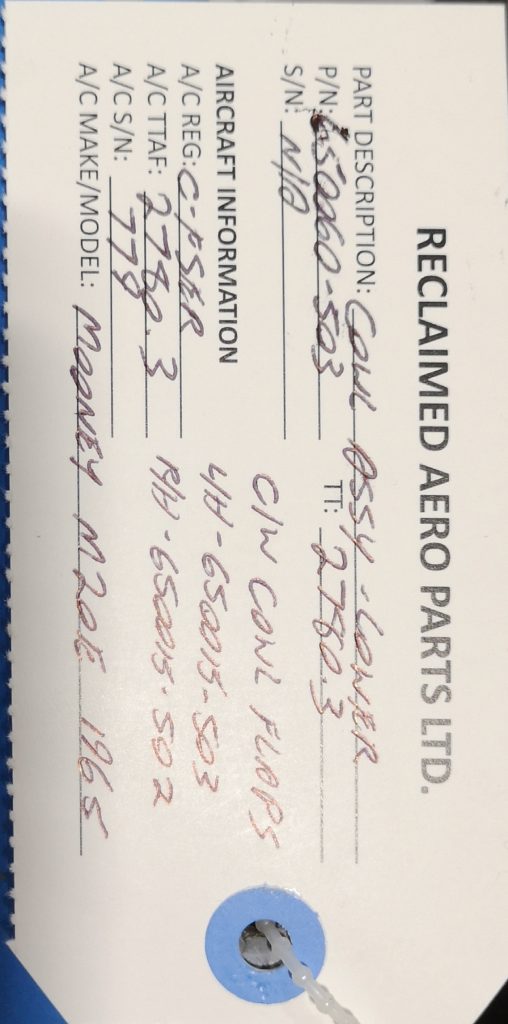 RECLAIMED AERO PARTS LTD.
PART DESCRIPTION: COWL ASSY - LOWER
P/N: 650060-503 TT: 2780.3
S/N: N/A
C/W COWL FLAPS
AIRCRAFT INFORMATION
L/H - 650015-503
A/C REG: C-FSER
R/H - 650015-502
A/C TTAF: 2780.3
A/C S/N: 778
A/C MAKE/MODEL: MOONEY M20E 1965